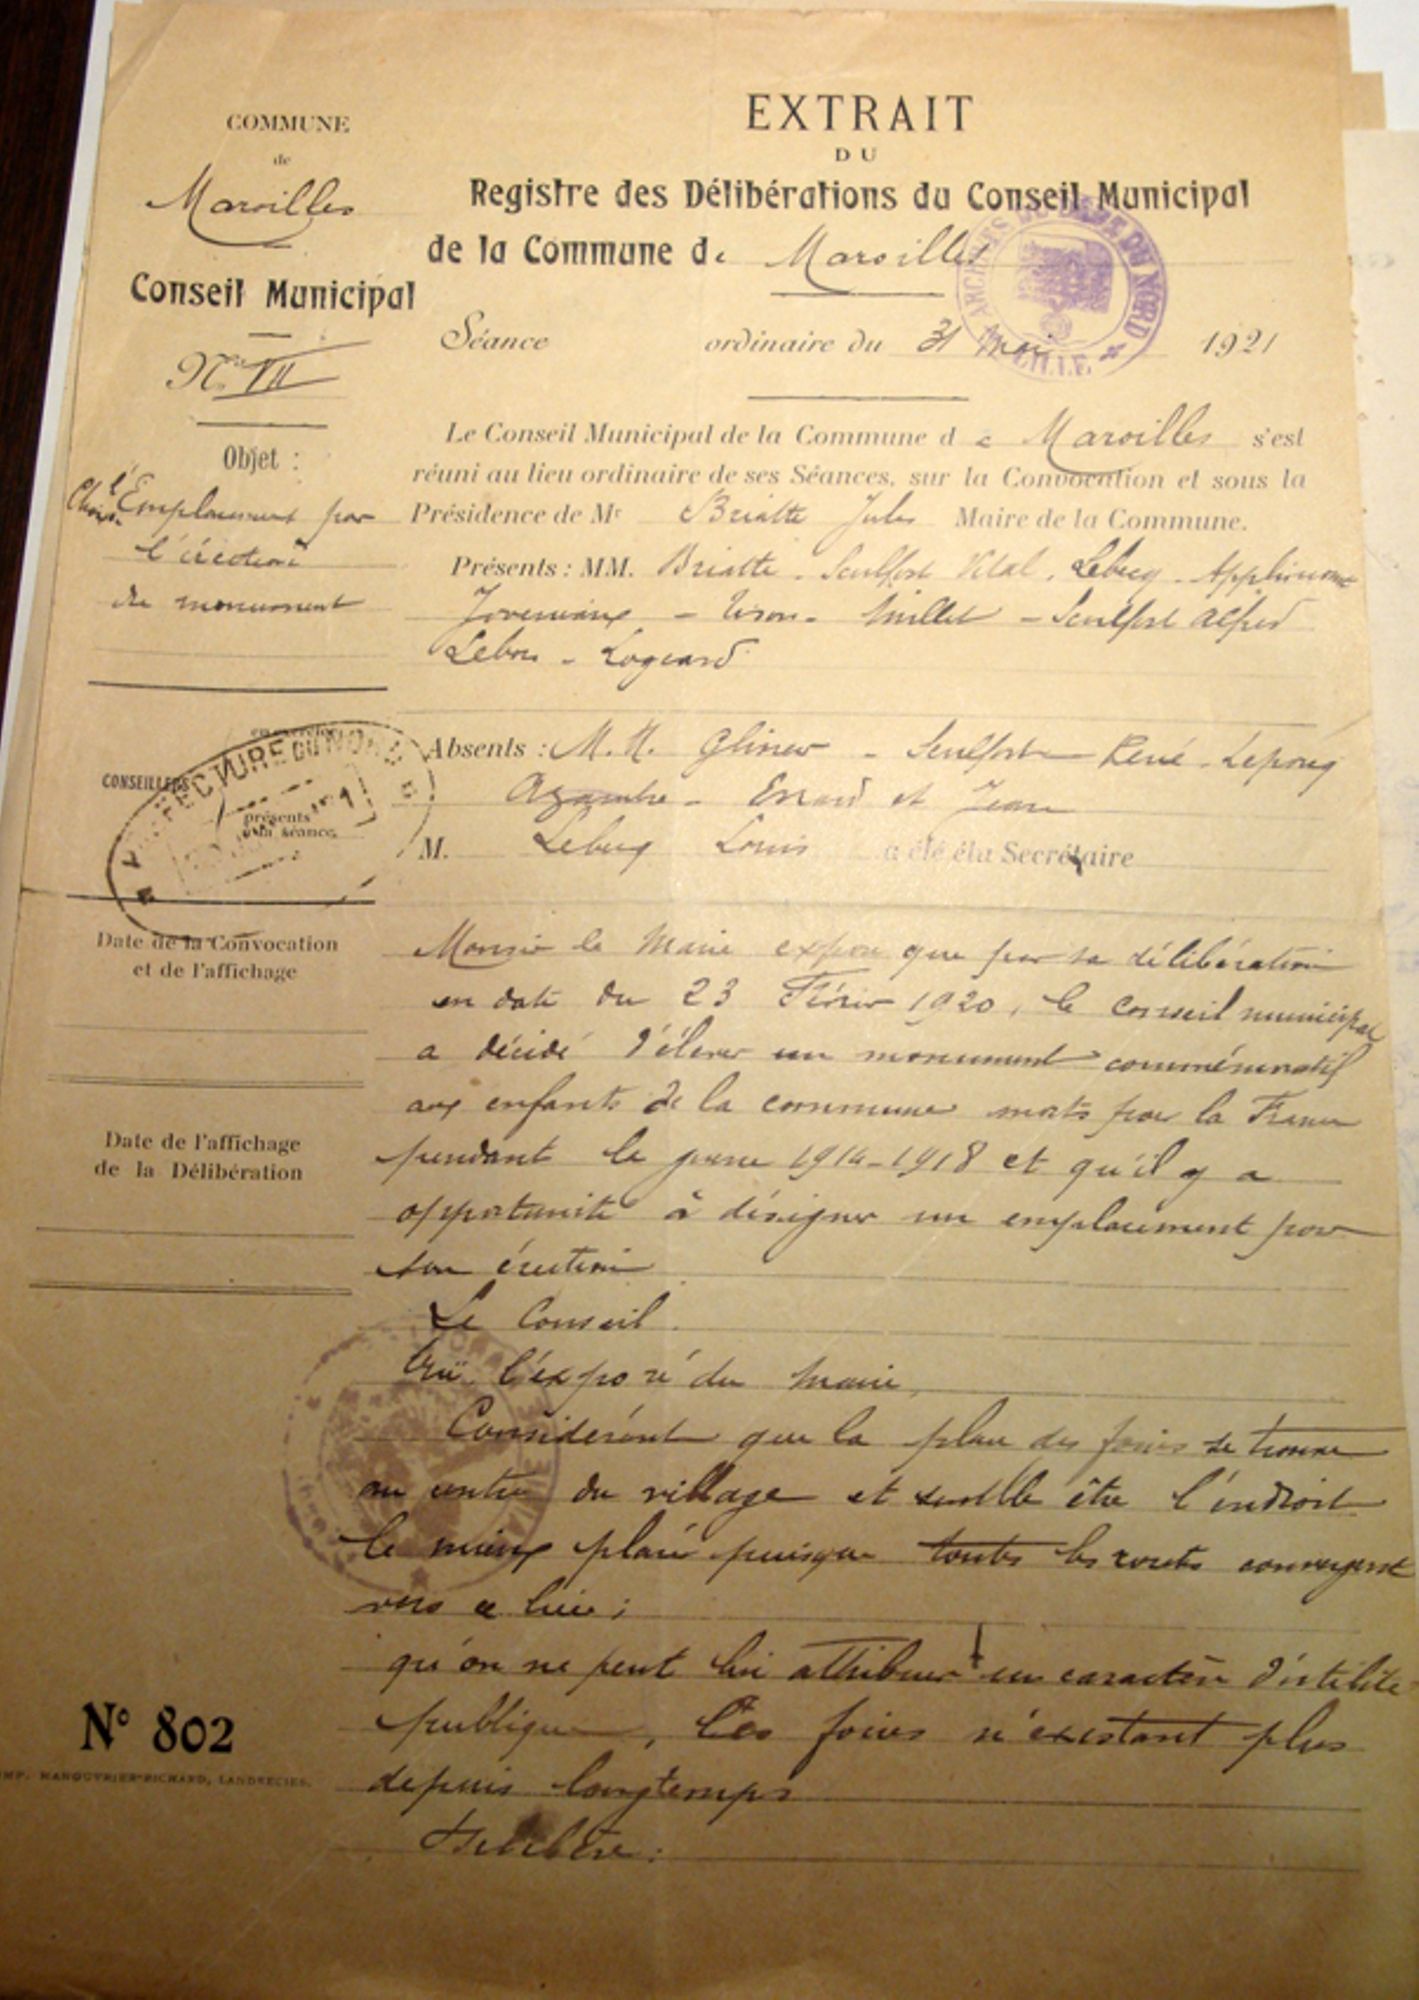 COMMUNE
de
Maroilles
Conseil Municipal
N° VII
Objet :
Choix
l'Emplacement pour
l'érection
du monument
CONSEILLERS
présents
à la séance
Date de la Convocation
et de l'affichage
Date de l'affichage
de la Délibération
N° 802
IMP. MANOUVRIER-RICHARD, LANDRECIES.
EXTRAIT
DU
Registre des Délibérations du Conseil Municipal
de la Commune de Maroilles
ARCHIVES DU DÉPT DU NORD * LILLE *
Séance ordinaire du 31 Mai 1921
Le Conseil Municipal de la Commune de Maroilles s'est
réuni au lieu ordinaire de ses Séances, sur la Convocation et sous la
Présidence de Mr Briatte Jules Maire de la Commune.
Présents : MM. Briatte - Sculfort Vital - Lebecq - Appliencourt
- Tison - Millet - Sculfort Alfred
Lebon - Logeard
Absents : M.M. Glineur - Sculfort René - Leporcq
Azambre - Errard et Jean
M. Lebecq Louis a été élu Secrétaire
Monsieur le Maire expose que par sa délibération
en date du 23 Février 1920, le conseil municipal
a décidé d'élever un monument commémoratif
aux enfants de la commune morts pour la France
pendant la guerre 1914-1918 et qu'il y a
opportunité à désigner un emplacement pour
son érection
Le Conseil.
Ouï l'exposé du Maire,
Considérant que la place des foires se trouve
au centre du village et semble être l'endroit
le mieux placé puisque toutes les routes convergent
vers ce lieu ;
qu'on ne peut lui attribuer un caractère d'utilité
publique, les foires n'existant plus
depuis longtemps
Délibère :